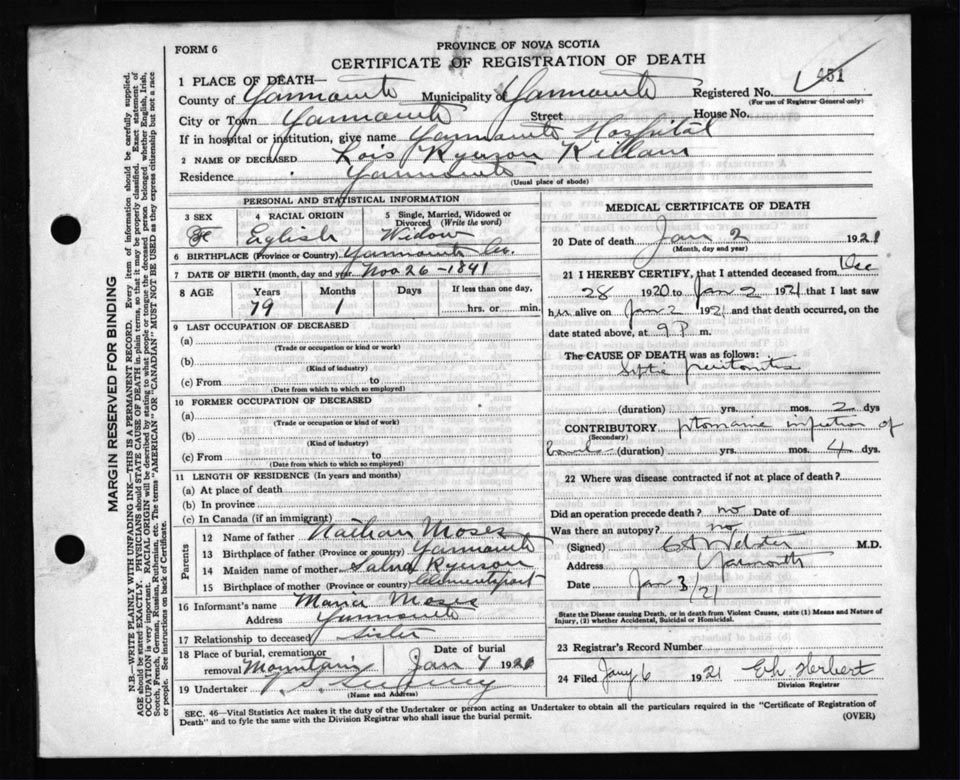 FORM 6
PROVINCE OF NOVA SCOTIA
CERTIFICATE OF REGISTRATION OF DEATH
1 PLACE OF DEATH—
County of Yarmouth Municipality of Yarmouth Registered No. 451
(For use of Registrar General only)
City or Town Yarmouth Street House No.
If in hospital or institution, give name Yarmouth Hospital
2 NAME OF DECEASED Lois Ryerson Killam
Residence Yarmouth
(Usual place of abode)
PERSONAL AND STATISTICAL INFORMATION
3 SEX 4 RACIAL ORIGIN 5 Single, Married, Widowed or Divorced (Write the word)
F English Widow
6 BIRTHPLACE (Province or Country) Yarmouth Co.
7 DATE OF BIRTH (month, day and year) Nov 26 - 1841
8 AGE Years Months Days If less than one day,
79 1 hrs. or min.
9 LAST OCCUPATION OF DECEASED
(a)
(Trade or occupation or kind or work)
(b)
(Kind of industry)
(c) From to
(Date from which to which so employed)
10 FORMER OCCUPATION OF DECEASED
(a)
(Trade or occupation or kind of work)
(b)
(Kind of industry)
(c) From to
(Date from which to which so employed)
11 LENGTH OF RESIDENCE (In years and months)
(a) At place of death
(b) In province
(c) In Canada (if an immigrant)
Parents
12 Name of father Nathan Moses
13 Birthplace of father (Province or country) Yarmouth
14 Maiden name of mother Salina Ryerson
15 Birthplace of mother (Province or country) Clementsport
16 Informant's name Maria Moses
Address Yarmouth
17 Relationship to deceased Sister
18 Place of burial, cremation or removal Mountain Date of burial Jan 7 1921
19 Undertaker
(Name and Address)
MEDICAL CERTIFICATE OF DEATH
20 Date of death Jan 2 1921
(Month, day and year)
21 I HEREBY CERTIFY, that I attended deceased from Dec
28 1920 to Jan 2 1921 that I last saw
her alive on Jan 2 1921 and that death occurred, on the
date stated above, at 9 P. m.
The CAUSE OF DEATH was as follows:
Septic peritonitis
(duration) yrs. mos. 2 dys
CONTRIBUTORY ptomaine infection of
(Secondary)
Bowels (duration) yrs. mos. 4 dys.
22 Where was disease contracted if not at place of death?
Did an operation precede death? no Date of
Was there an autopsy? no
(Signed) Webster M.D.
Address Yarmouth
Date Jan 3/21
State the Disease causing Death, or in death from Violent Causes, state (1) Means and Nature of
Injury, (2) whether Accidental, Suicidal or Homicidal.
23 Registrar's Record Number
24 Filed Jany 6 1921 Herbert
Division Registrar
SEC. 46—Vital Statistics Act makes it the duty of the Undertaker or person acting as Undertaker to obtain all the particulars required in the "Certificate of Registration of
Death" and to fyle the same with the Division Registrar who shall issue the burial permit. (OVER)
MARGIN RESERVED FOR BINDING
N.B.—WRITE PLAINLY WITH UNFADING INK—THIS IS A PERMANENT RECORD. Every item of information should be carefully supplied.
AGE should be stated EXACTLY. PHYSICIANS should STATE CAUSE OF DEATH in plain terms, so that it may be properly classified. Exact statement of
OCCUPATION is very important. RACIAL ORIGIN will be described by stating to what people or tongue the deceased person belonged whether English, Irish,
Scotch, French, German, Russian, Ruthenian, etc. The terms "AMERICAN" OR "CANADIAN" MUST NOT BE USED as they express citizenship but not a race
or people. See instructions on back of Certificate.